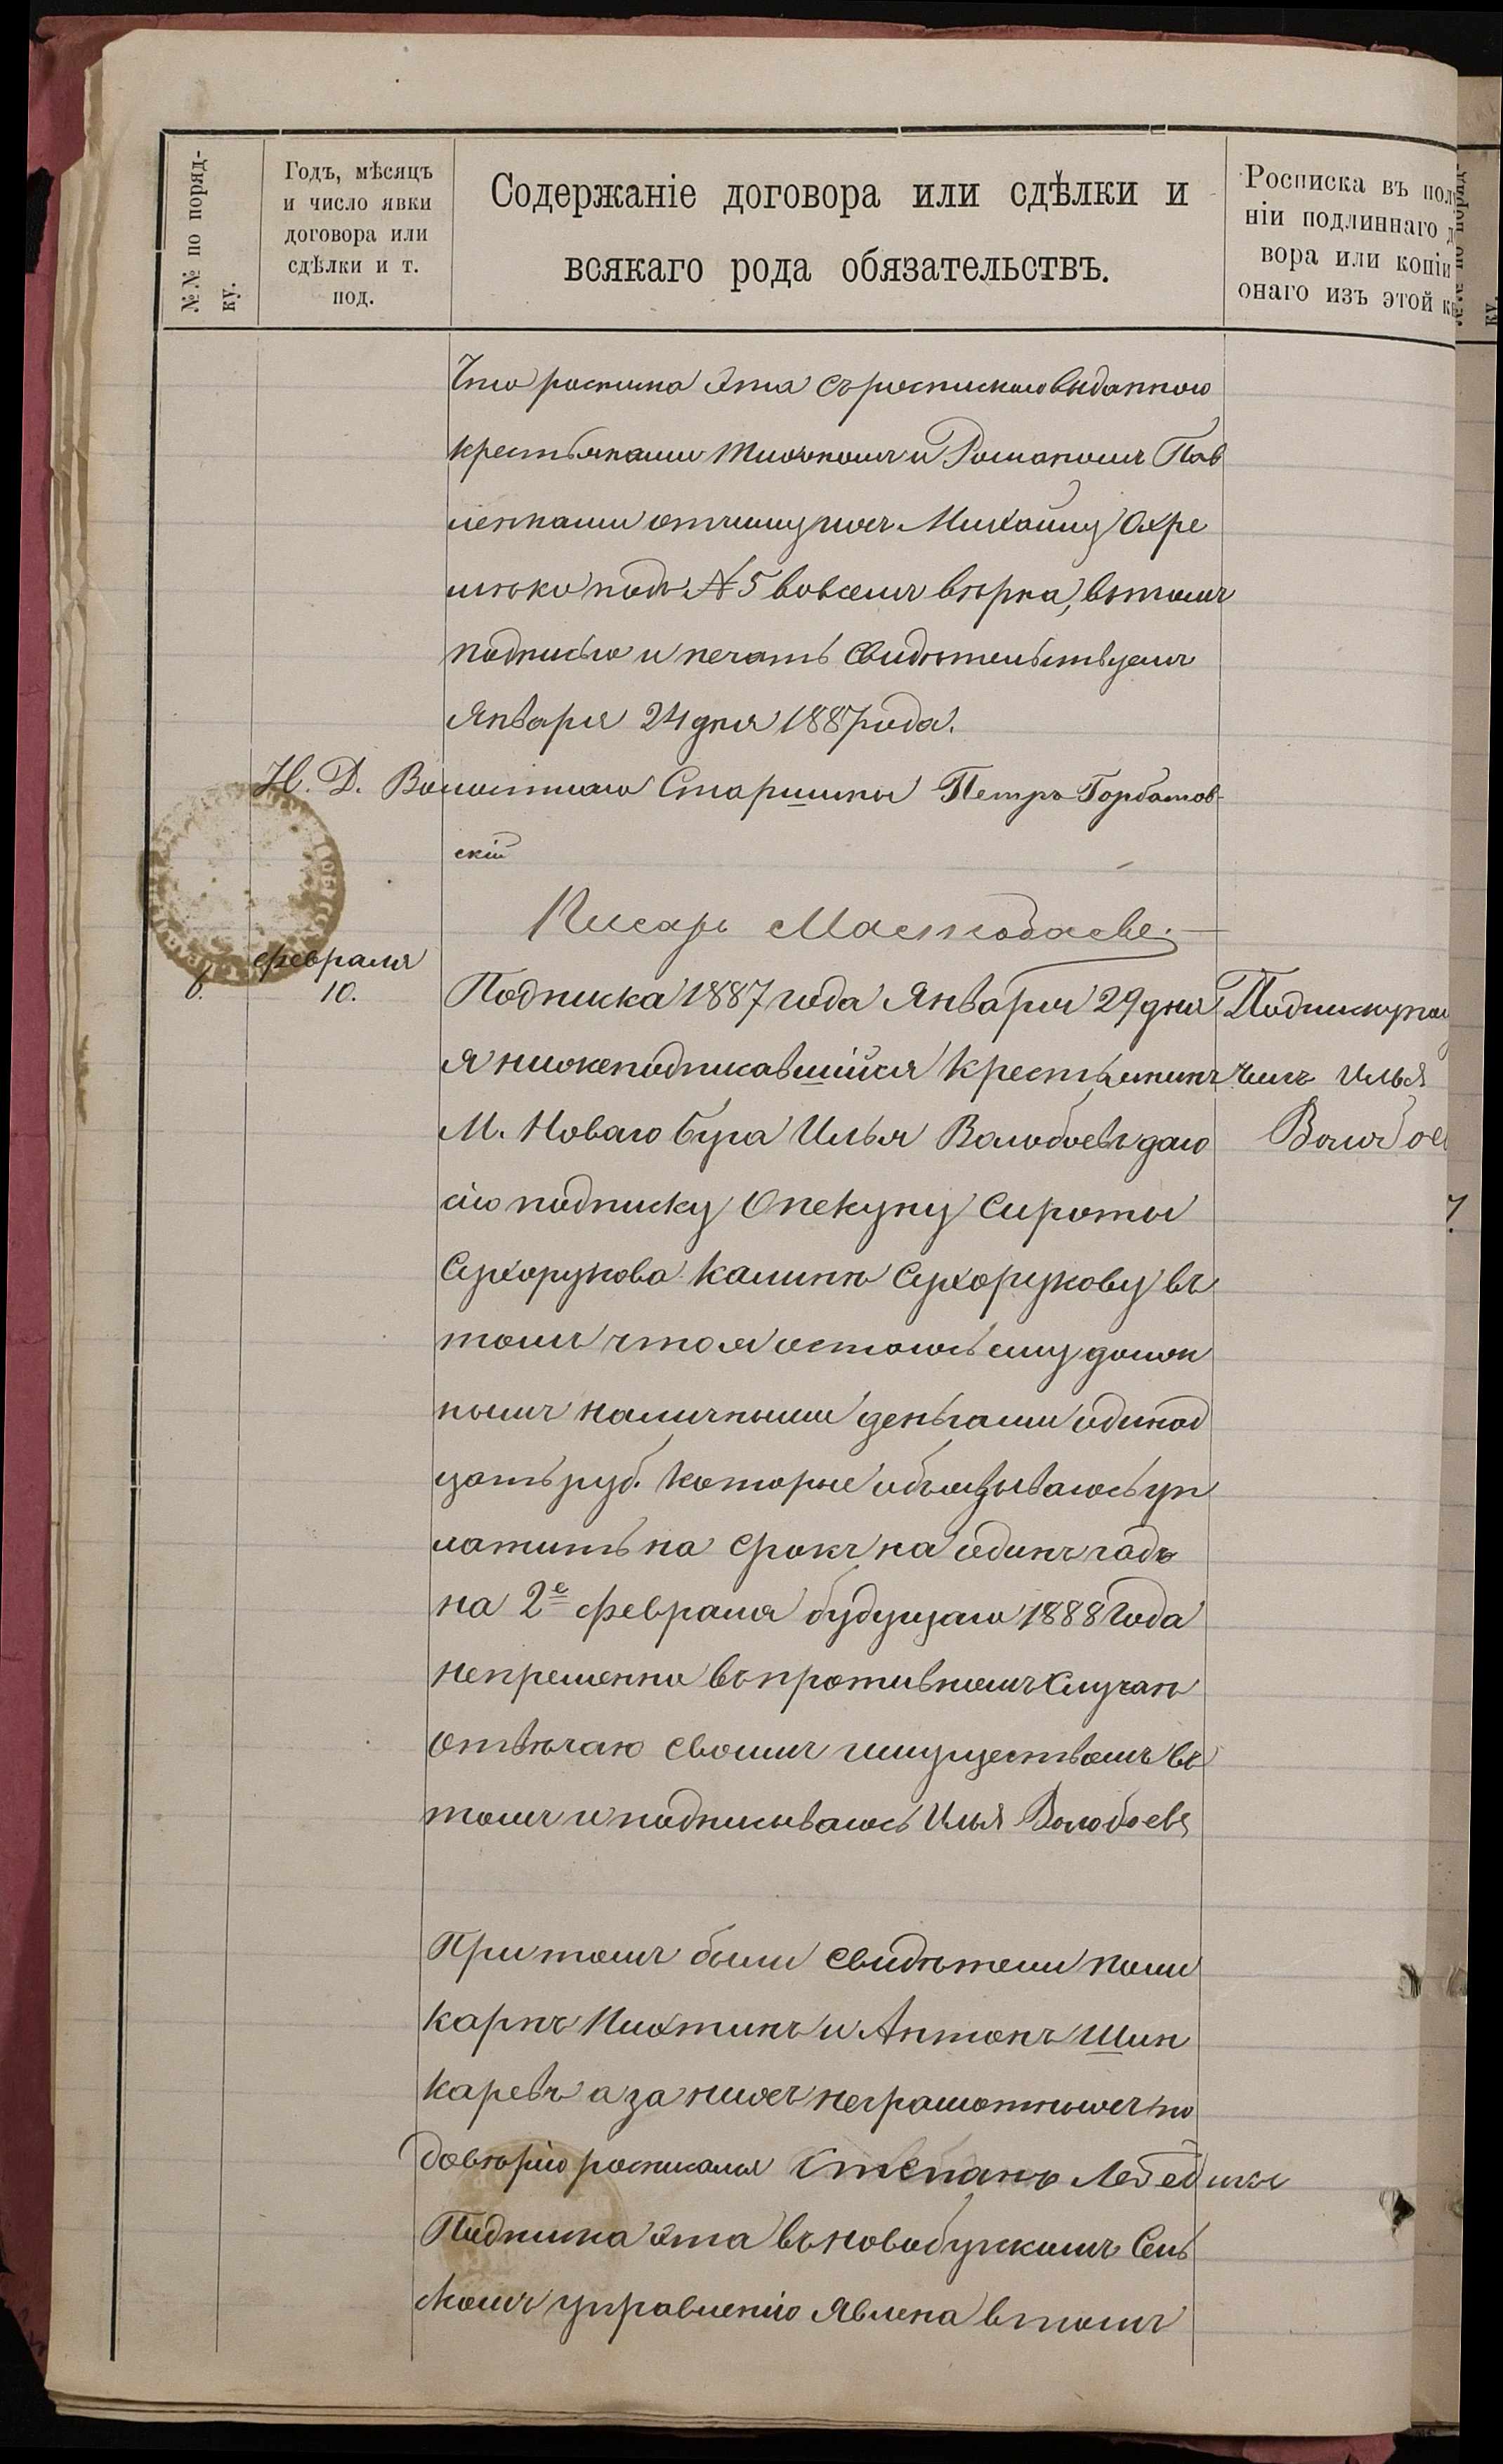 №№ по поряд-
ку.
Годъ, мѣсяцъ
и число явки
договора или
сдѣлки и т.
под.
Содержаніе договора или сдѣлки и
всякаго рода обязательствъ.
Росписка въ пол
ніи подлиннаго д
вора или копіи
онаго изъ этой к
Что росписка эта съ роспискаю выданною
крестьянами и Романомъ Пав
ленками Михайлу Охре
менко подъ № 5 вовсемъ вѣрна, въ томъ
подписью и печать свидѣтельствуемъ
Января 24 дня 1887 года.
Н. Д. Волостнаго Старшины Петръ Горбатов-
скій
Писарь
6.
февраля
10.
Подписка 1887 года Января 29 дня
я нижеподписавшійся крестьянинъ
М. Новаго Буга Илья Волобоевъ даю
сію подписку Опекуну Сироты
Сухорукова Калинѣ Сухорукову въ
томъ что я остаюсь ему долж
нымъ наличными деньгами одинад
цать руб. которые обязываюсь уп
латить на срокъ на одинъ годъ
на 2е февраля будущаго 1888 года
непременно въ противномъ случаѣ
отвѣчаю своимъ имуществомъ въ
томъ и подписываюсь Илья Волобоевъ
При томъ были свидѣтели
Карпъ и Антонъ Шин
каревъ а за нихъ неграмотныхъ по
довѣрію росписался Степанъ
Подписка эта въ Новобугскомъ Сель
скомъ управленію явлена в томъ
Подписку по
чилъ Илья
Волобоев
7.